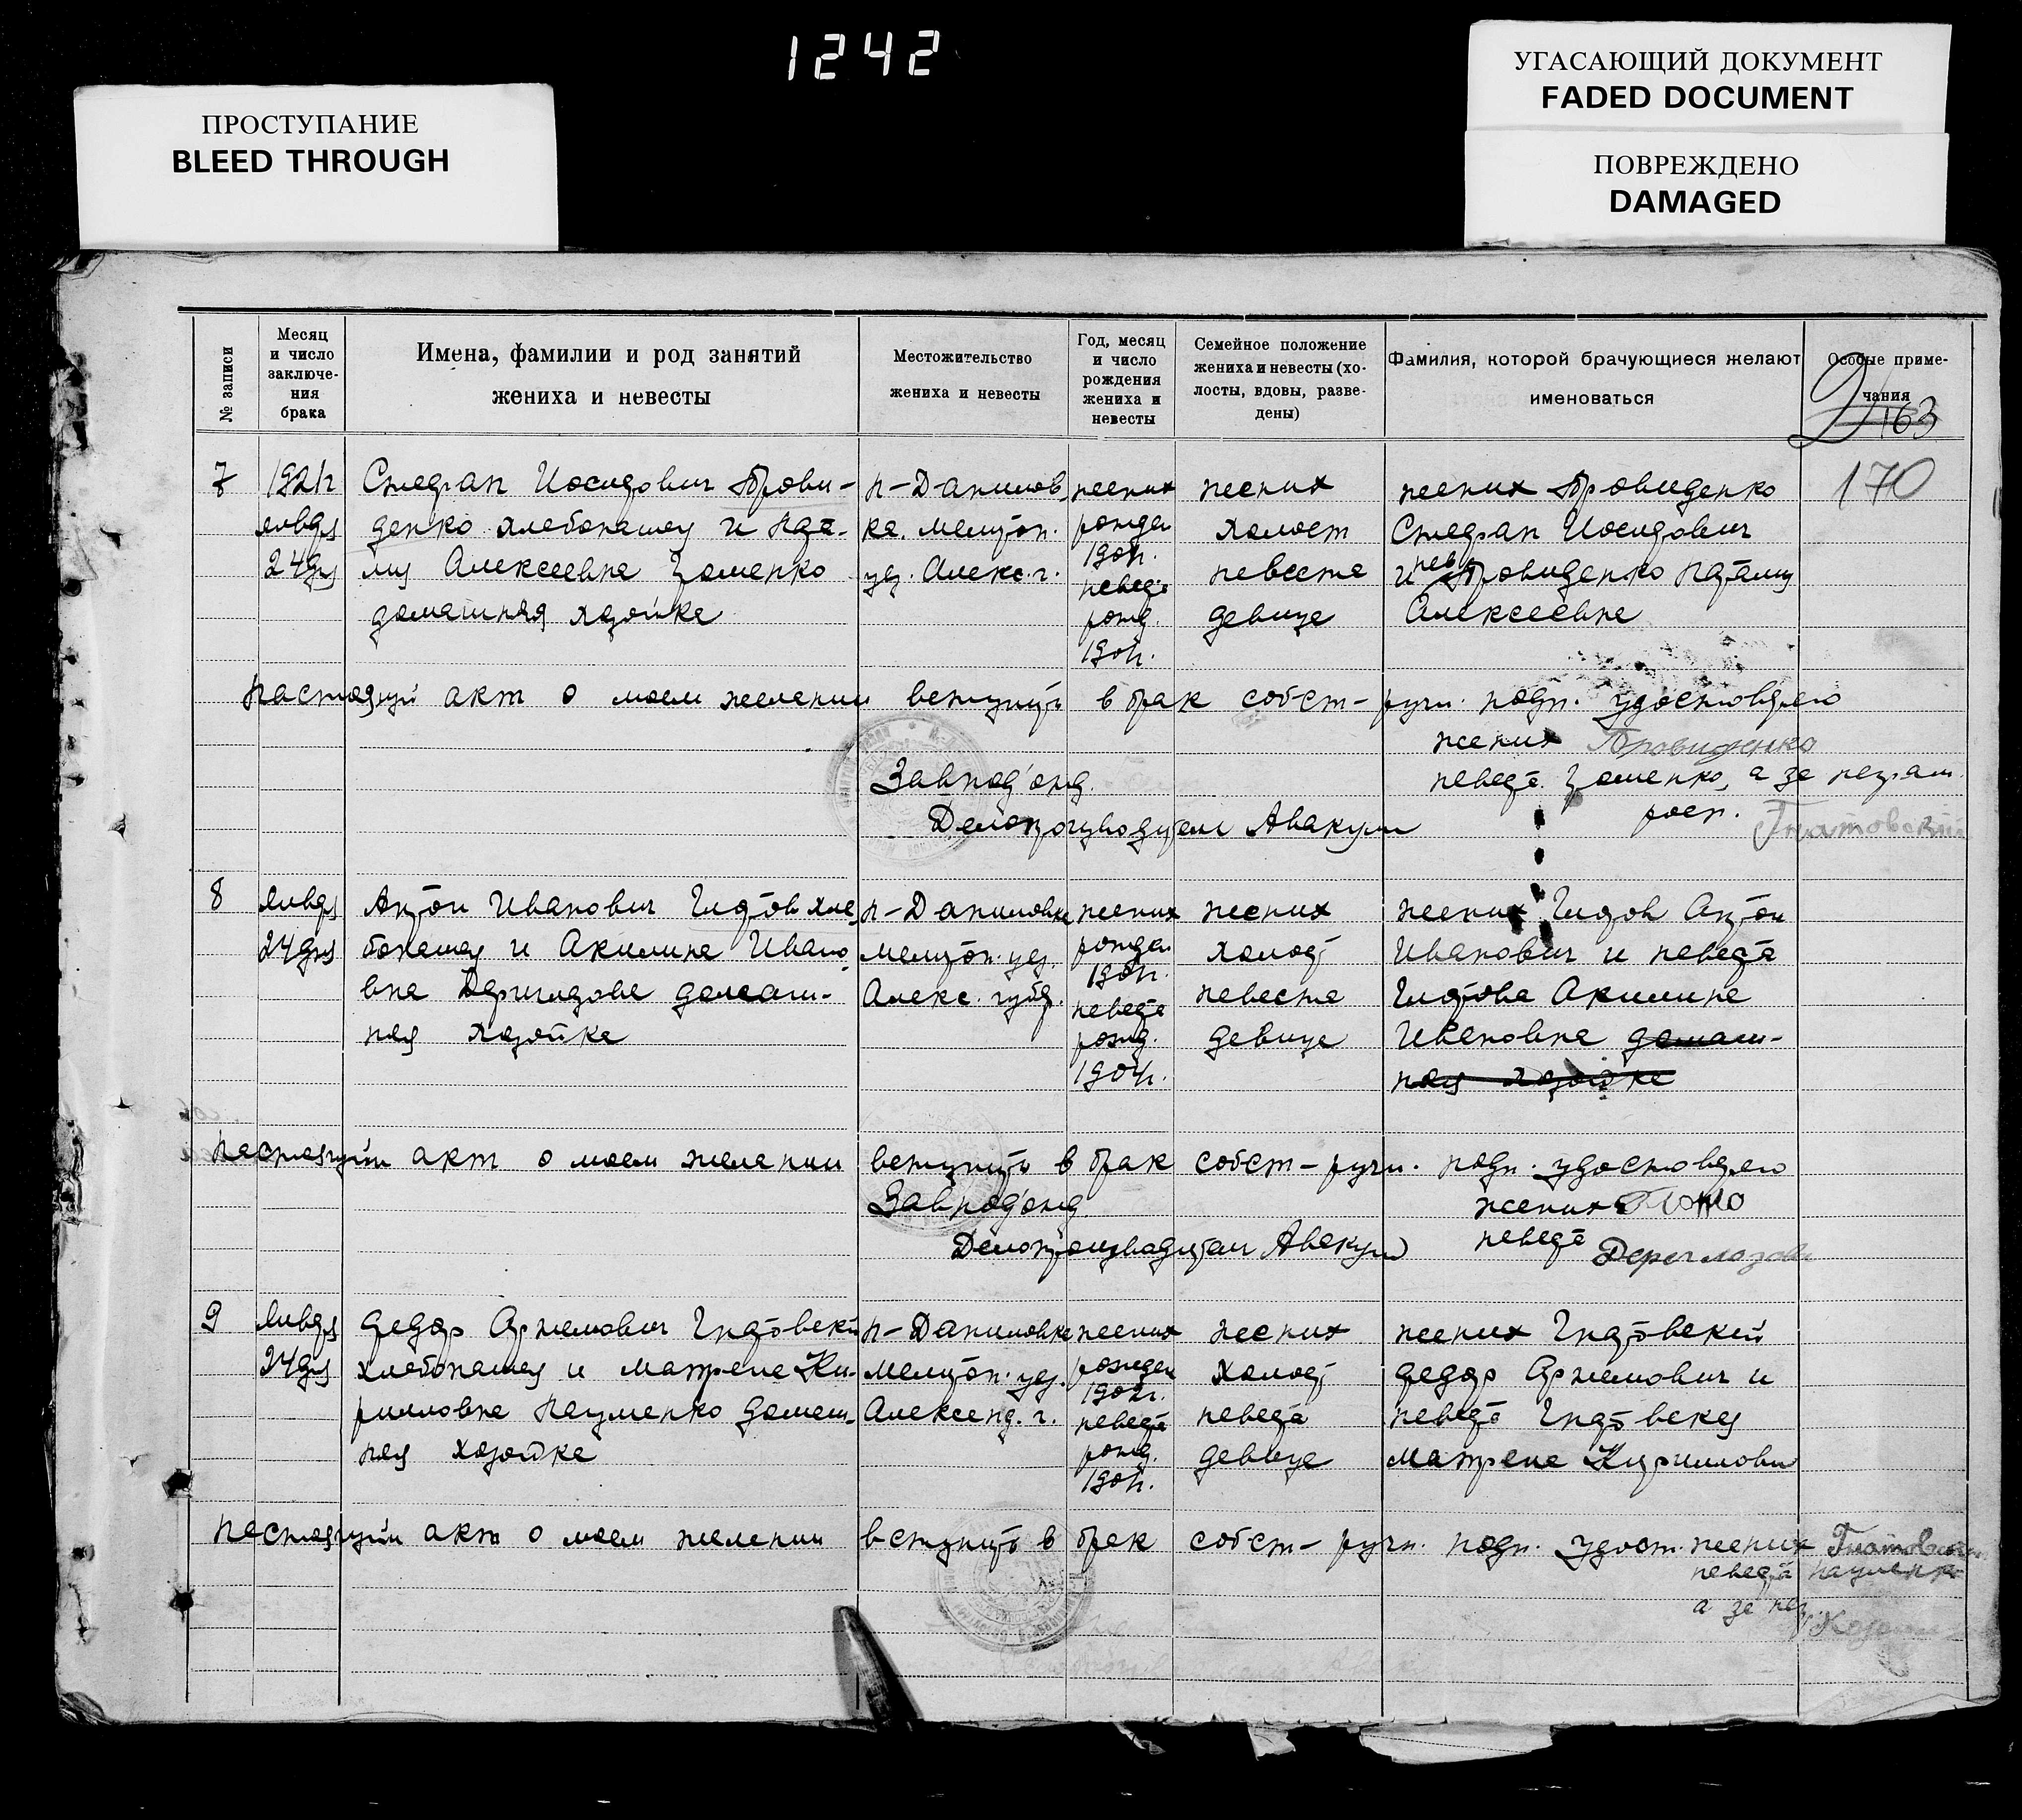 1242
ПРОСТУПАНИЕ
BLEED THROUGH
УГАСАЮЩИЙ ДОКУМЕНТ
FADED DOCUMENT
ПОВРЕЖДЕНО
DAMAGED
№ записи
Месяц и число заключе-ния брака
Имена, фамилии и род занятий
жениха и невесты
Местожительство
жениха и невесты
Год, месяц и число рождения жениха и невесты
Семейное положение жениха и невесты (хо-лосты, вдовы, разве-дены)
Фамилия, которой брачующиеся желают
именоваться
Особые приме-
чания
163
170
7
1921г
январ
24 дня
Стефан Иосифович Брови-
денко хлебопашец и Ната-
лия Алексеевна Цоменко
домашняя хозяйка
Н-Данилов
ка. Мелитоп.
уез. Алекс. г.
жених
рожден
1901г.
невеста
рожд.
1901г.
жених
холост
невеста
девица
жених Бровиденко
Стефан Иосифович
и нев Бровиденко Наталия
Алексеевна
Настоящий акт о моем желании вступить в брак собст-ручн. подп. удостоверяю
жених Бровиденко
невеста Цоменко, а за неграм.
росп. Гнатовский
Завподотд.
Делопроизводитель Авакум
8
Январ
24 дня
Антон Иванович Глотов хле
бопашец и Акилина Ивано
вна Дериглазова домаш-
няя хозяйка
Н-Даниловка
Мелитоп. уез.
Алекс. губ.
жених
рожден
1901г.
невеста
рожд.
1904г.
жених
холост
невеста
девица
жених Глотов Антон
Иванович и невеста
Глотова Акилина
Ивановна домаш-
няя хозяйка
Настоящий акт о моем желании вступить в брак собст-ручн. подп. удостоверяю
Завподотд
жених
Делопроизводитель Авакум
невеста Дериглазова
9
Январ
24 дня
Федор Артемович Гнатовский
хлебопашец и Матрена Ки-
рилловна Науменко домаш-
няя хозяйка
Н-Даниловка
Мелитоп. уез.
Александ. г.
жених
рожден
1902г.
невеста
рожд.
1901г.
жених
холост
невеста
девица
жених Гнатовский
Федор Артемович и
невеста Гнатовская
Матрена Кирилловн
Настоящий акт о моем желании вступить в брак собст-ручн. подп. удост. жених Гнатовский
невеста Науменко
а за нег.